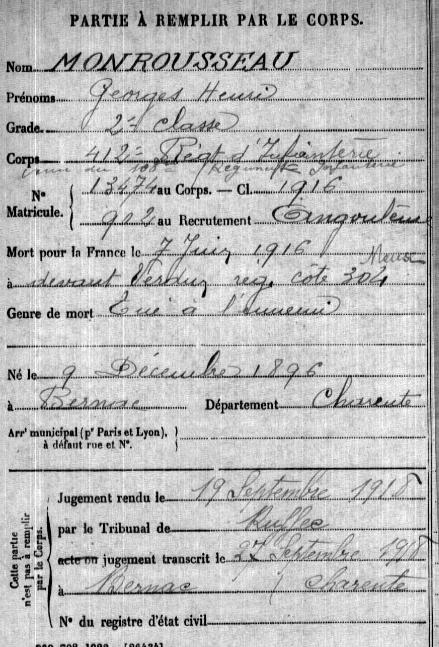 PARTIE À REMPLIR PAR LE CORPS.
Nom MONROUSSEAU
Prénoms Georges Henri
Grade 2e classe
Corps 412e Régt d'Infanterie
venu du 108e Régiment Infanterie
N° Matricule. { 13474 au Corps. — Cl. 1916
902 au Recrutement Angoulême
Mort pour la France le 7 Juin 1916
à devant Verdun rég. cote 304 Meuse
Genre de mort Tué à l'ennemi
Né le 9 Décembre 1896
à Bernac Département Charente
Arrt municipal (pr Paris et Lyon), }
à défaut rue et N°.
Cette partie n'est pas à remplir par le Corps.
Jugement rendu le 19 Septembre 1918
par le Tribunal de Ruffec
acte ou jugement transcrit le 27 Septembre 1918
à Bernac Charente
N° du registre d'état civil